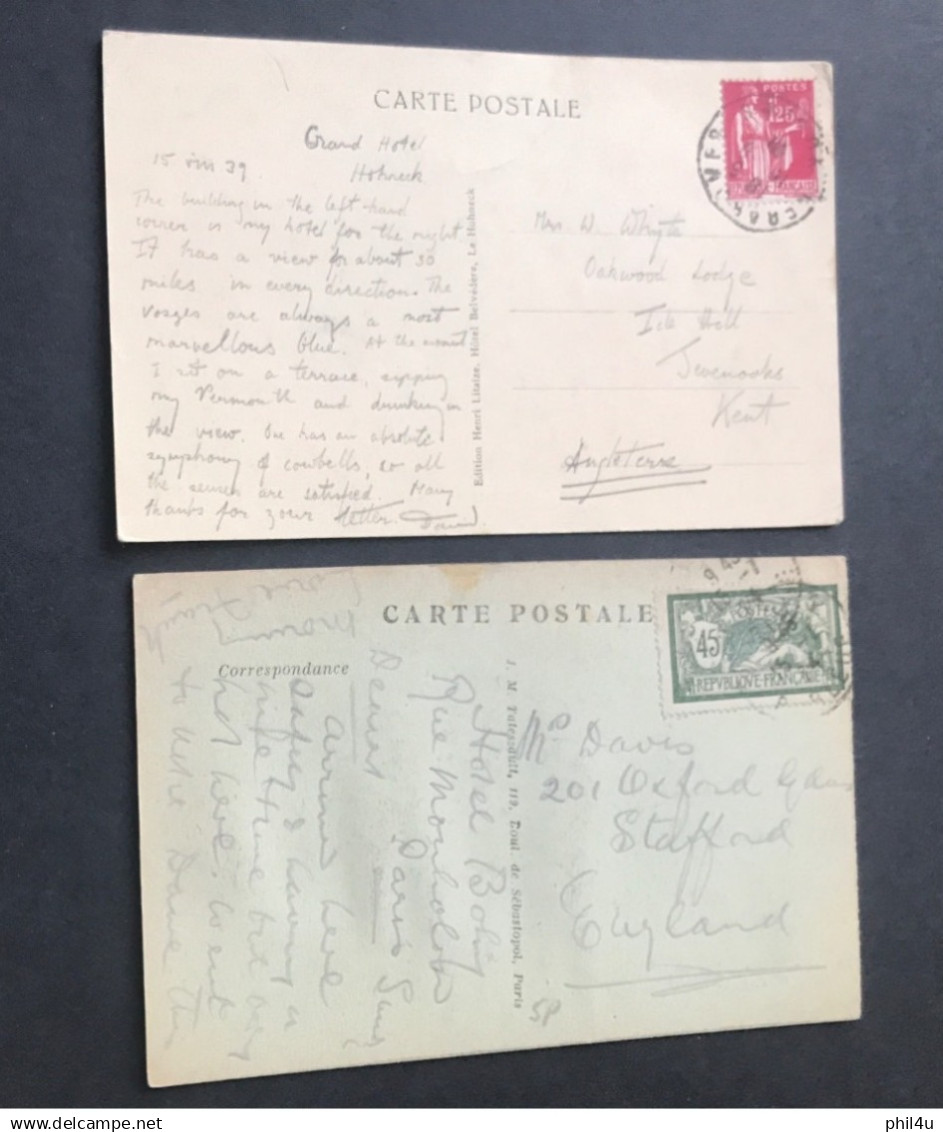 CARTE POSTALE
Grand Hotel
Hohneck
15 viii 39
The building in the left-hand
corner is my hotel for the night.
It has a view for about 30
miles in every direction. The
Vosges are always a most
marvellous blue. At the moment
I sit on a terrace, sipping
my Vermouth and drinking in
the view. One has an absolute
symphony of cowbells, so all
the senses are satisfied. Many
thanks for your letter. David
Edition Henri Litaize, Hôtel Belvédère, Le Hohneck
POSTES
1F25
Mrs W. Whyte
Oakwood Lodge
Ide Hill
Sevenoaks
Kent
Angleterre
CARTE POSTALE
Correspondance
Hotel Bohy
Rue Montholon
Paris
Dearest
arrived here
safely & having a
nice time but very
hot here, went
to Notre Dame
45
POSTES
REPVBLIQVE FRANÇAISE
Boul. de Sébastopol, Paris
Mr Davis
201 Oxford Gdns
Stafford
England
phil4u